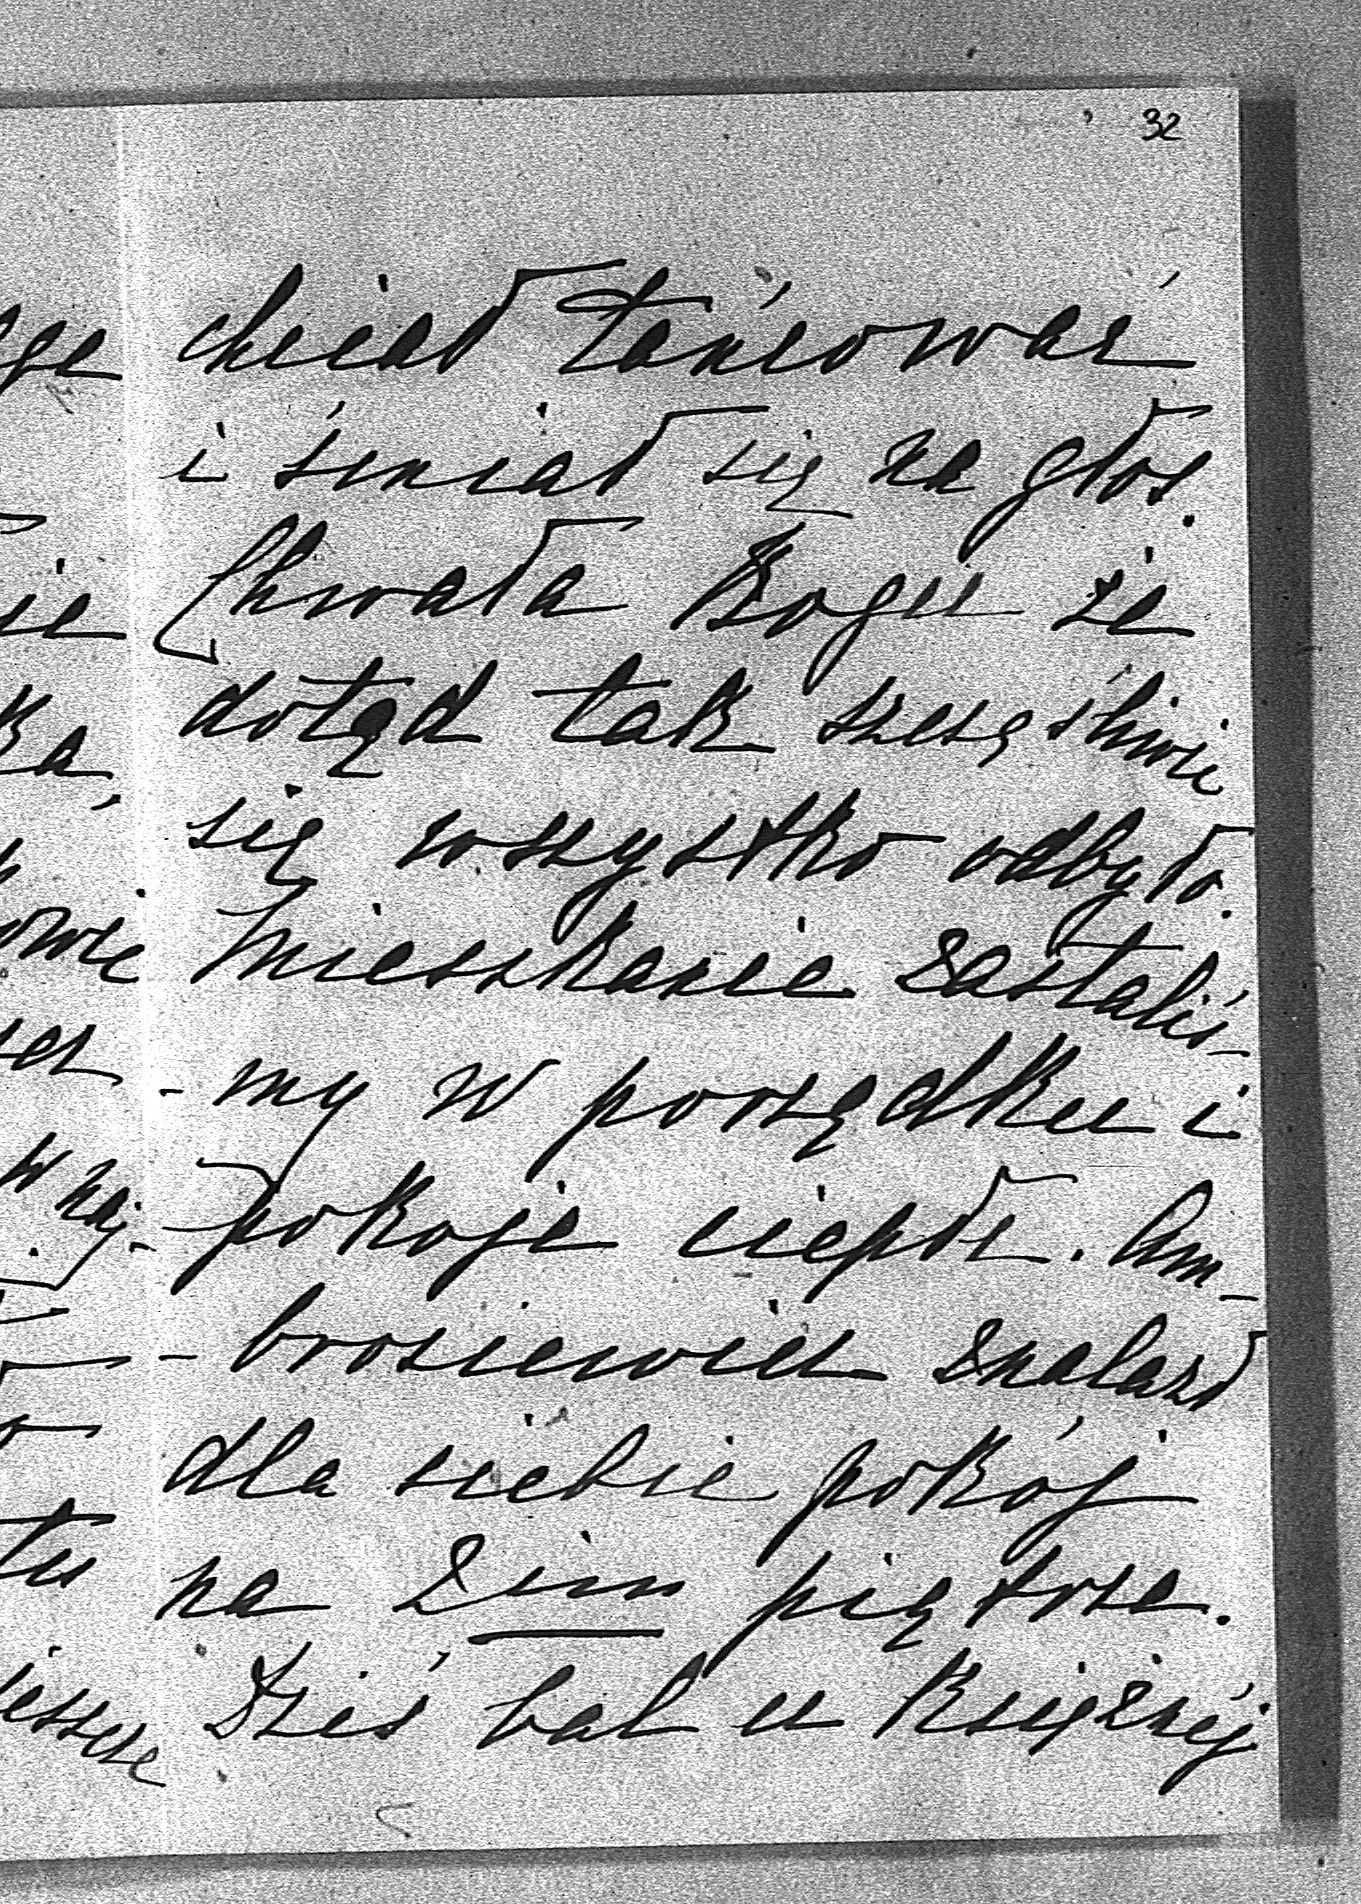 32
chciał tańcować
i śmiał się na głos.
Chwała Bogu że
dotąd tak szczęśliwie
się wszystko odbyło.
Mieszkanie zastaliś-
-my w porządku i
pokoje ciepłe. Am-
-brosiewicz znalazł
dla siebie pokój
na 2im piętrze.
Dziś bal u Księżnéj